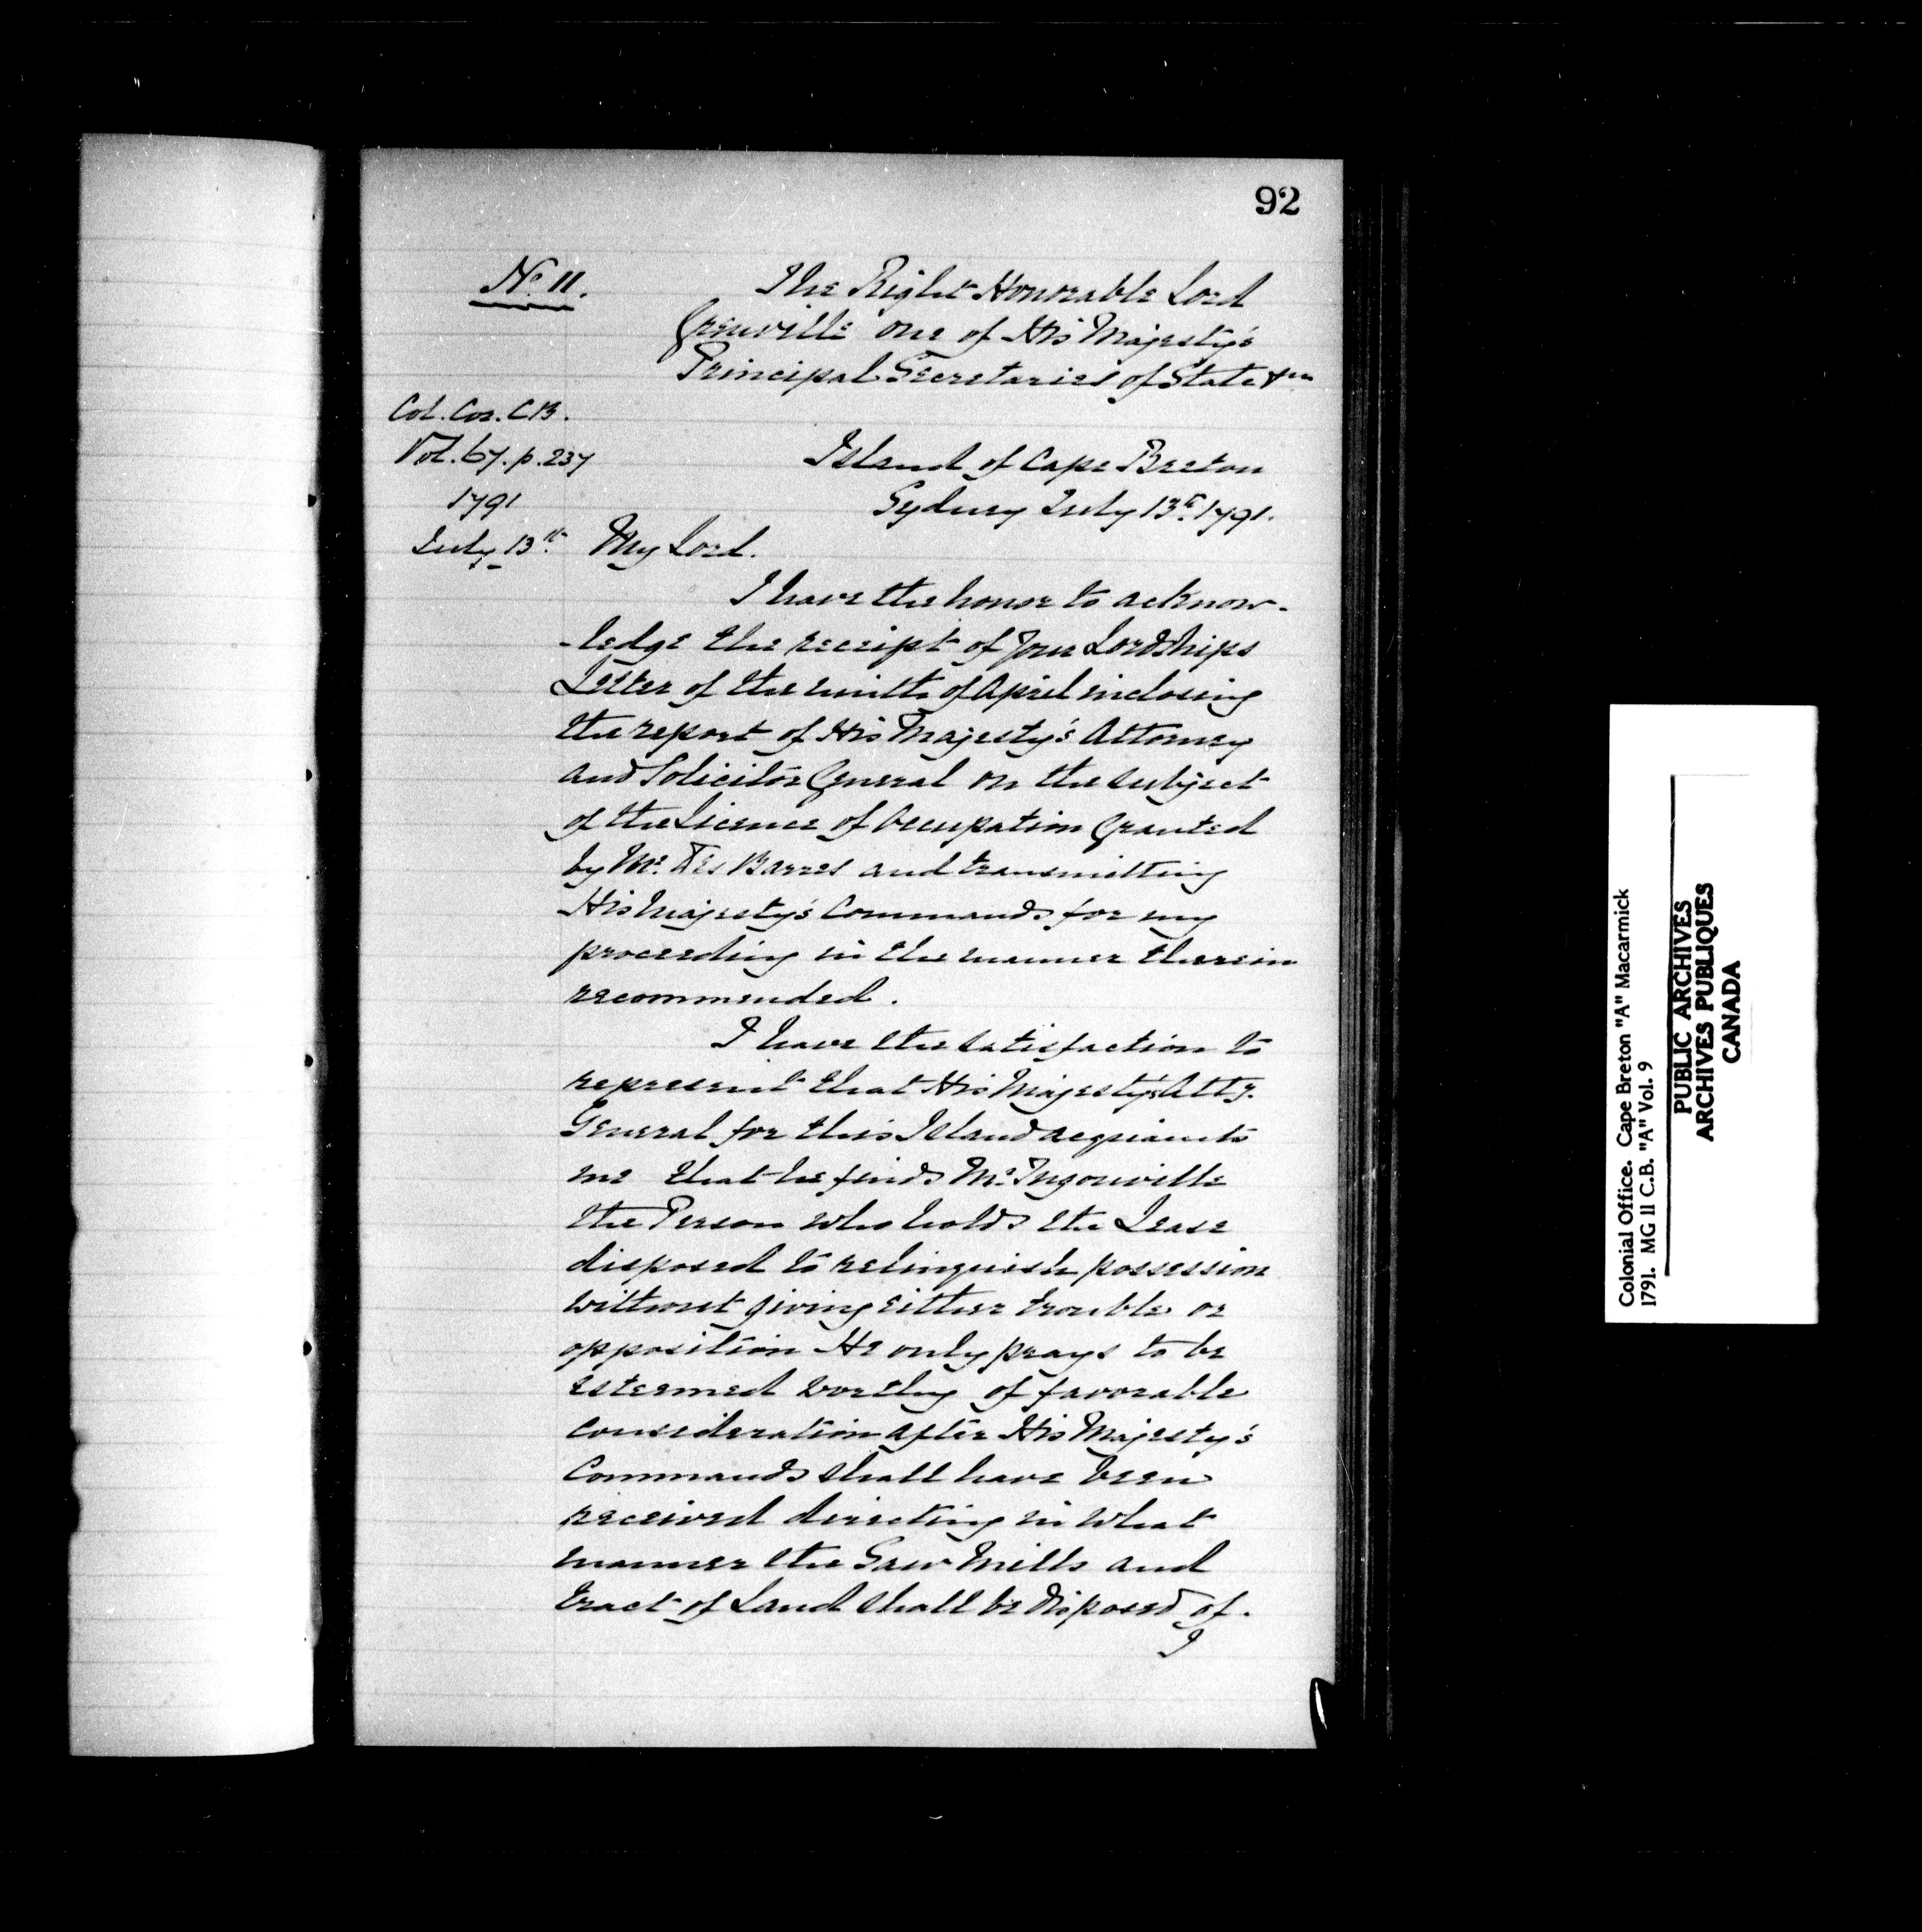 92
No. 11.
The Right Honorable Lord
Grenville one of His Majesty's
Principal Secretaries of State &ca
Col. Cor. C.B.
Vol. 67. p. 237
1791
July 13th
Island of Cape Breton
Sydney July 13th 1791.
My Lord.
I have the honor to acknow-
-ledge the receipt of your Lordships
Letter of the ninth of April inclosing
the report of His Majesty's Attorney
and Solicitor General on the subject
of the Licence of Occupation Granted
by Mr. Des Barres and transmitting
His Majesty's Commands for my
proceeding in the manner therein
recommended.
I have the satisfaction to
represent that His Majesty's Atty.
General for this Island acquaints
me that he finds Mr. Ingouville
the Person who holds the Lease
disposed to relinquish possession
without giving either trouble or
opposition He only prays to be
esteemed worthy of favorable
consideration after His Majesty's
Commands shall have been
received directing in what
manner the Saw Mills and
tract of Land shall be disposed of.
I
Colonial Office. Cape Breton "A" Macarmick
1791. MG 11 C.B. "A" Vol. 9
PUBLIC ARCHIVES
ARCHIVES PUBLIQUES
CANADA